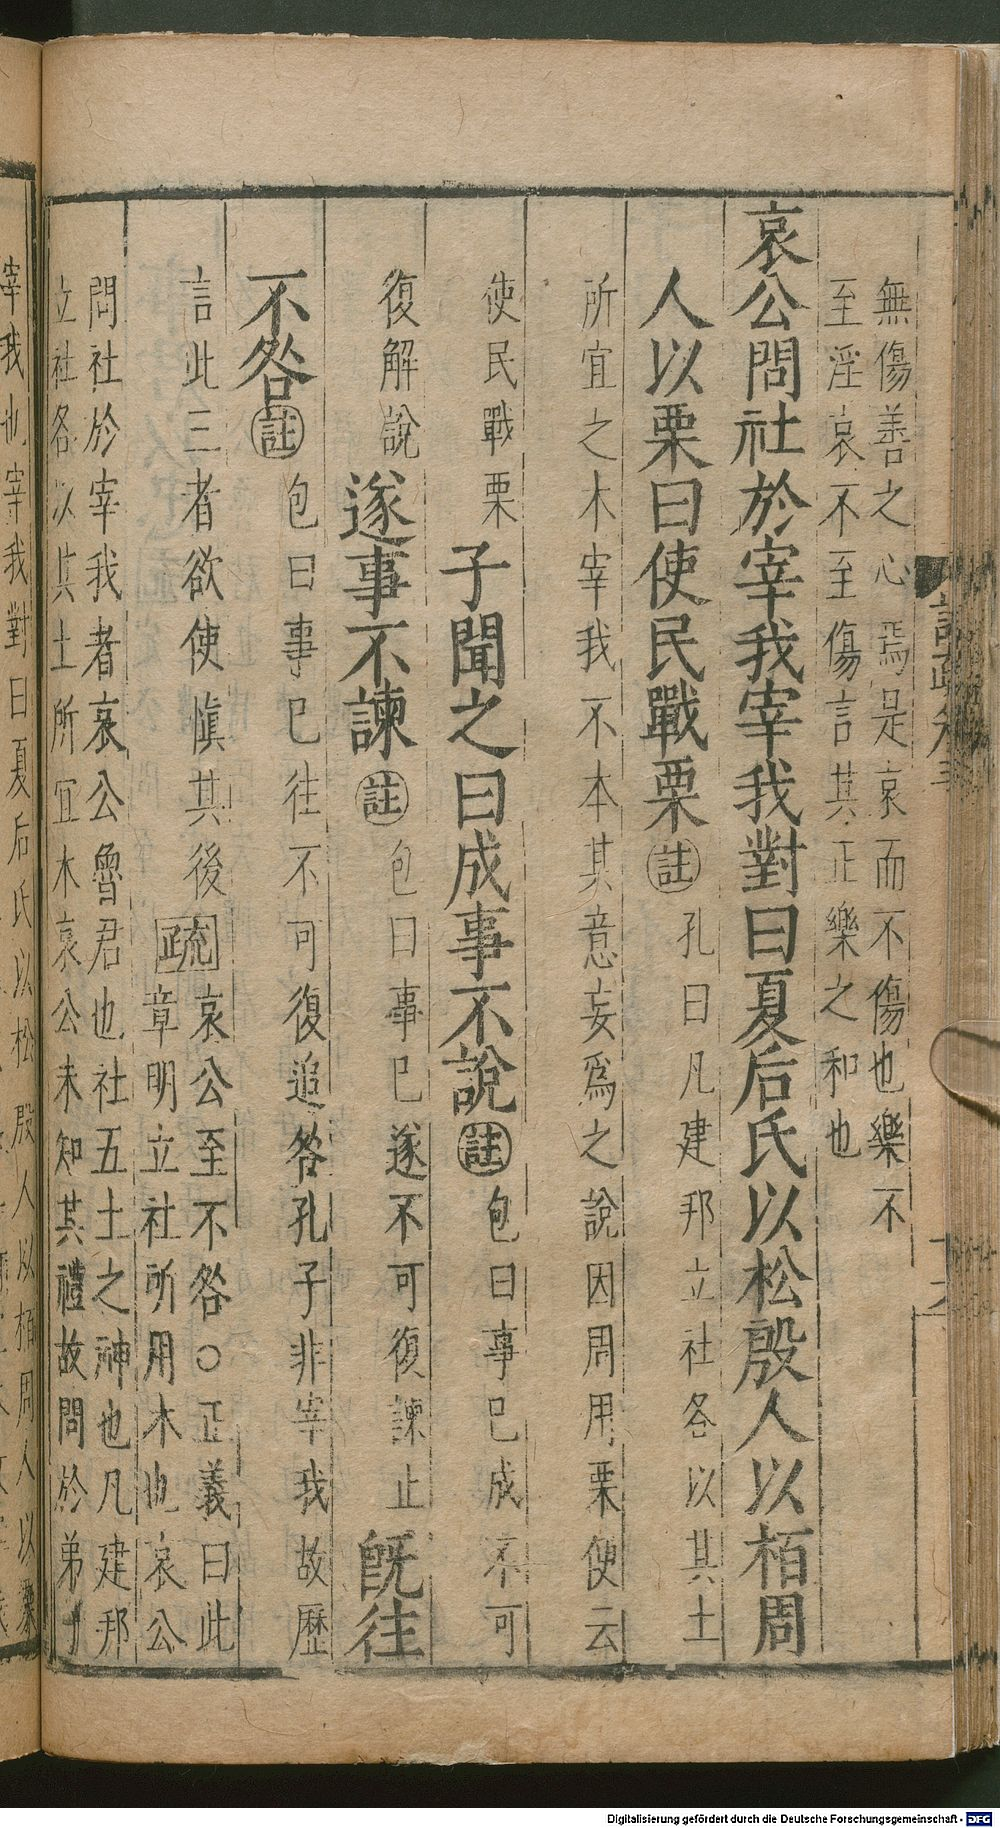 無傷善之心焉是哀而不傷也樂不
至淫哀不至傷言其正樂之和也
哀公問社於宰我宰我對曰夏后氏以松殷人以栢周
人以栗曰使民戰栗註孔曰凡建邦立社各以其土
所宜之木宰我不本其意妄爲之說因周用栗便云
使民戰栗子聞之曰成事不說註包曰事巳成不可
復解說遂事不諫註包曰事巳遂不可復諫止旣往
不咎註包曰事巳往不可復追咎孔子非宰我故歷
言此三者欲使愼其後疏哀公至不咎○正義曰此
章明立社所用木也哀公
問社於宰我者哀公魯君也社五土之神也凡建邦
立社各以其土所宜木哀公未知其禮故問於弟子
宰我也宰我對曰夏后氏以松殷人以栢周人以栗
Digitalisierung gefördert durch die Deutsche Forschungsgemeinschaft - DFG